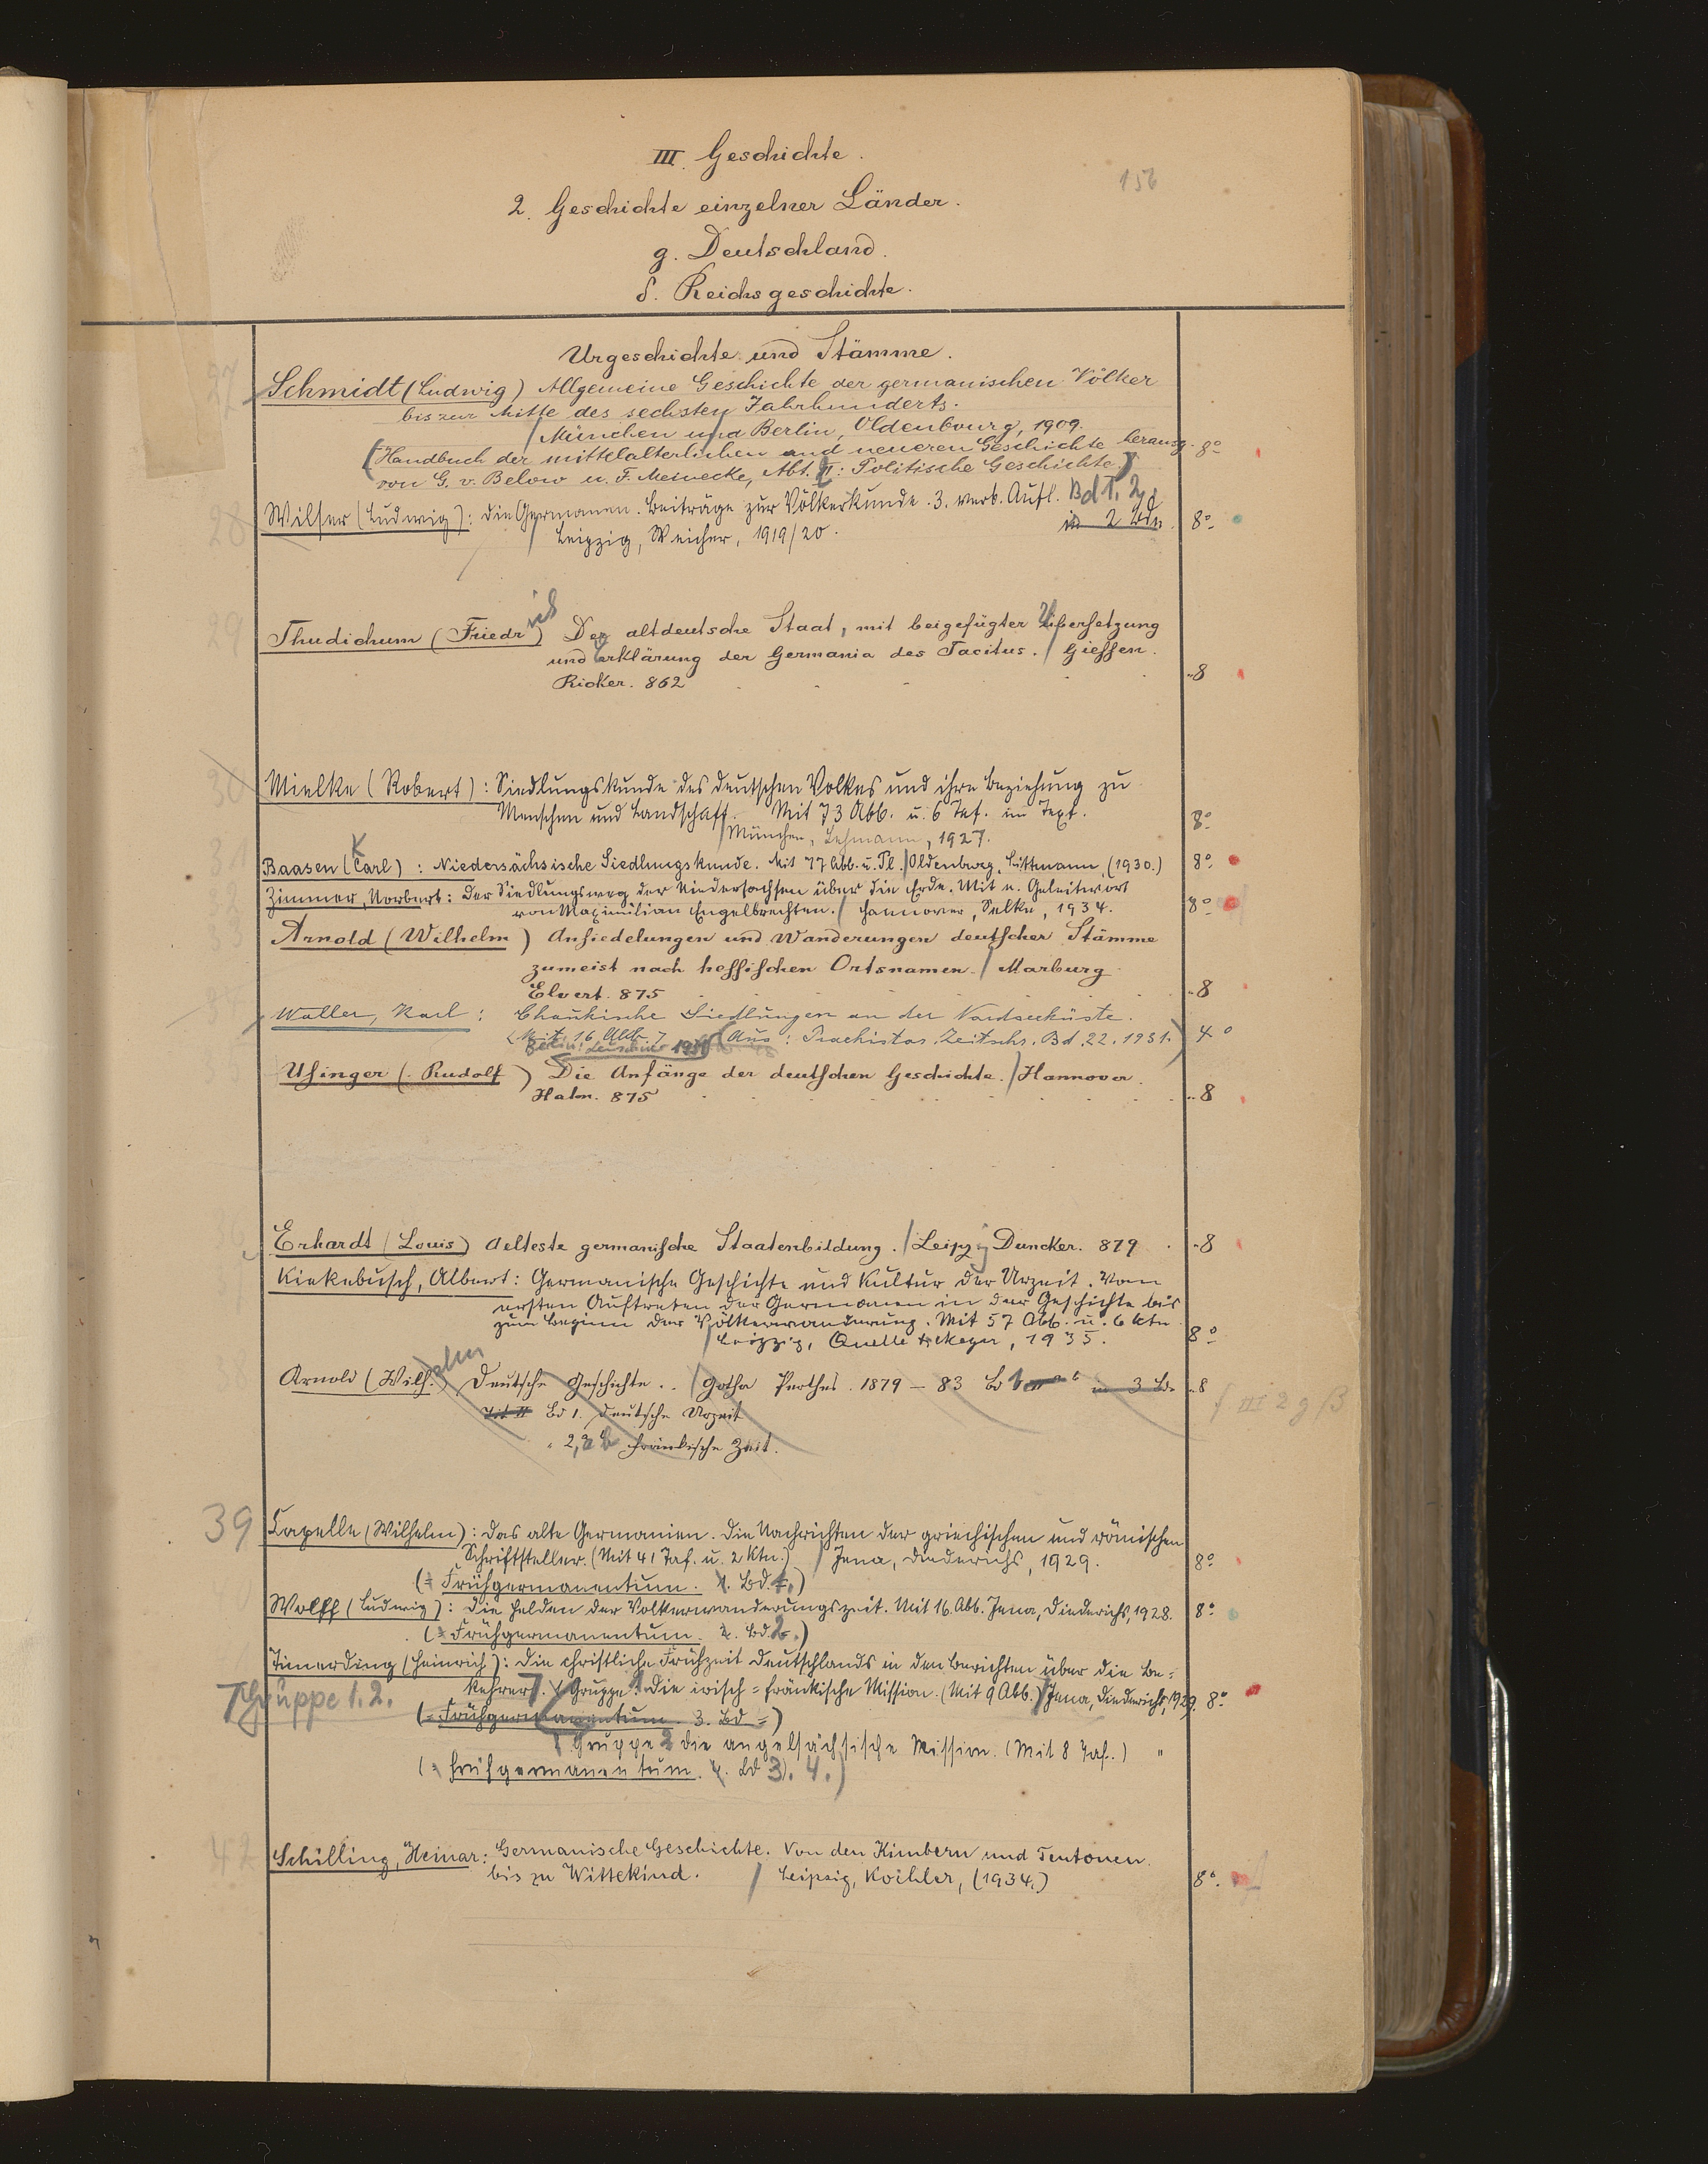 III. Geschichte.
156
2. Geschichte einzelner Länder.
g. Deutschland.
δ. Reichsgeschichte.
Urgeschichte und Stämme.
27 Schmidt (Ludwig) Allgemeine Geschichte der germanischen Völker
bis zur Mitte des sechsten Jahrhunderts.
/ München und Berlin, Oldenbourg, 1909.
(Handbuch der mittelalterlichen und neueren Geschichte herausg. 8°
von G. v. Below u. F. Meinecke, Abt. II: Politische Geschichte.)
28 Wilser (Ludwig): Die Germanen. Beiträge zur Völkerkunde. 3. verb. Aufl. Bd 1. 2.
/ Leipzig, Weicher, 1919/20. in 2 Bdn. 8°
29 Thudichum (Friedrich) Der altdeutsche Staat, mit beigefügter Übersetzung
und Erklärung der Germania des Tacitus. / Giessen.
Ricker. 862 8
30 Mielke (Robert): Siedlungskunde des deutschen Volkes und ihre Beziehung zu
Menschen und Landschaft. Mit 73 Abb. u. 6 Taf. im Text.
/ München, Lehmann, 1927. 8°
31 Baasen (Carl) K: Niedersächsische Siedlungskunde. Mit 77 Abb. u. Pl. / Oldenburg, Littmann, (1930.) 8°
32 Zimmer, Norbert: Der Siedlungsweg der Niedersachsen über die Erde. Mit e. Geleitwort
von Maximilian Engelbrechten. / Hannover, Selke, 1934. 8°
33 Arnold (Wilhelm) Ansiedelungen und Wanderungen deutscher Stämme
zumeist nach hessischen Ortsnamen. / Marburg
Elwert. 875 8
Waller, Karl: Chaukische Siedlungen an der Nordseeküste.
(Mit 16 Abb.) (Aus: Praehistor. Zeitschr. Bd. 22. 1931.) 4°
1931
Usinger (Rudolf) Die Anfänge der deutschen Geschichte. / Hannover.
Hahn. 875 8
Erhardt (Louis) Aelteste germanische Staatenbildung. / Leipzig Duncker. 879 8
Kiekebusch, Albert: Germanische Geschichte und Kultur der Urzeit. Vom
ersten Auftreten der Germanen in der Geschichte bis
zum Beginn der Völkerwanderung. Mit 57 Abb. u. 6 Ktn
/ Leipzig, Quelle & Meyer, 1935. 8°
Arnold (Wilhelm) Deutsche Geschichte. / Gotha Perthes. 1879 – 83 Bd 1 in 3 Bd. 8
f III 2 g β
Bd 1. Deutsche Urzeit
" 2, a b Fränkische Zeit.
39 Capelle (Wilhelm): Das alte Germanien. Die Nachrichten der griechischen und römischen
Schriftsteller. (Mit 41 Taf. u. 2 Ktn.) / Jena, Diederichs, 1929. 8°
(= Frühgermanentum. Bd. 1.)
Wolff (Ludwig): Die Helden der Völkerwanderungszeit. Mit 16 Abb. Jena, Diederichs, 1928. 8°
(= Frühgermanentum. Bd. 2.)
Timerding (Heinrich): Die christliche Frühzeit Deutschlands in den Berichten über die Be-
kehrer. Gruppe 1. Die irisch-fränkische Mission. (Mit 9 Abb.) / Jena, Diederichs, 1929. 8°
Gruppe 1. 2.
(= Frühgermanentum. 3. Bd =)
Gruppe 2 Die angelsächsische Mission. (Mit 8 Taf.) "
(= Frühgermanentum. Bd 3. 4.)
42 Schilling, Heinar: Germanische Geschichte. Von den Kimbern und Teutonen
bis zu Wittekind. / Leipzig, Koehler, (1934.) 8°.